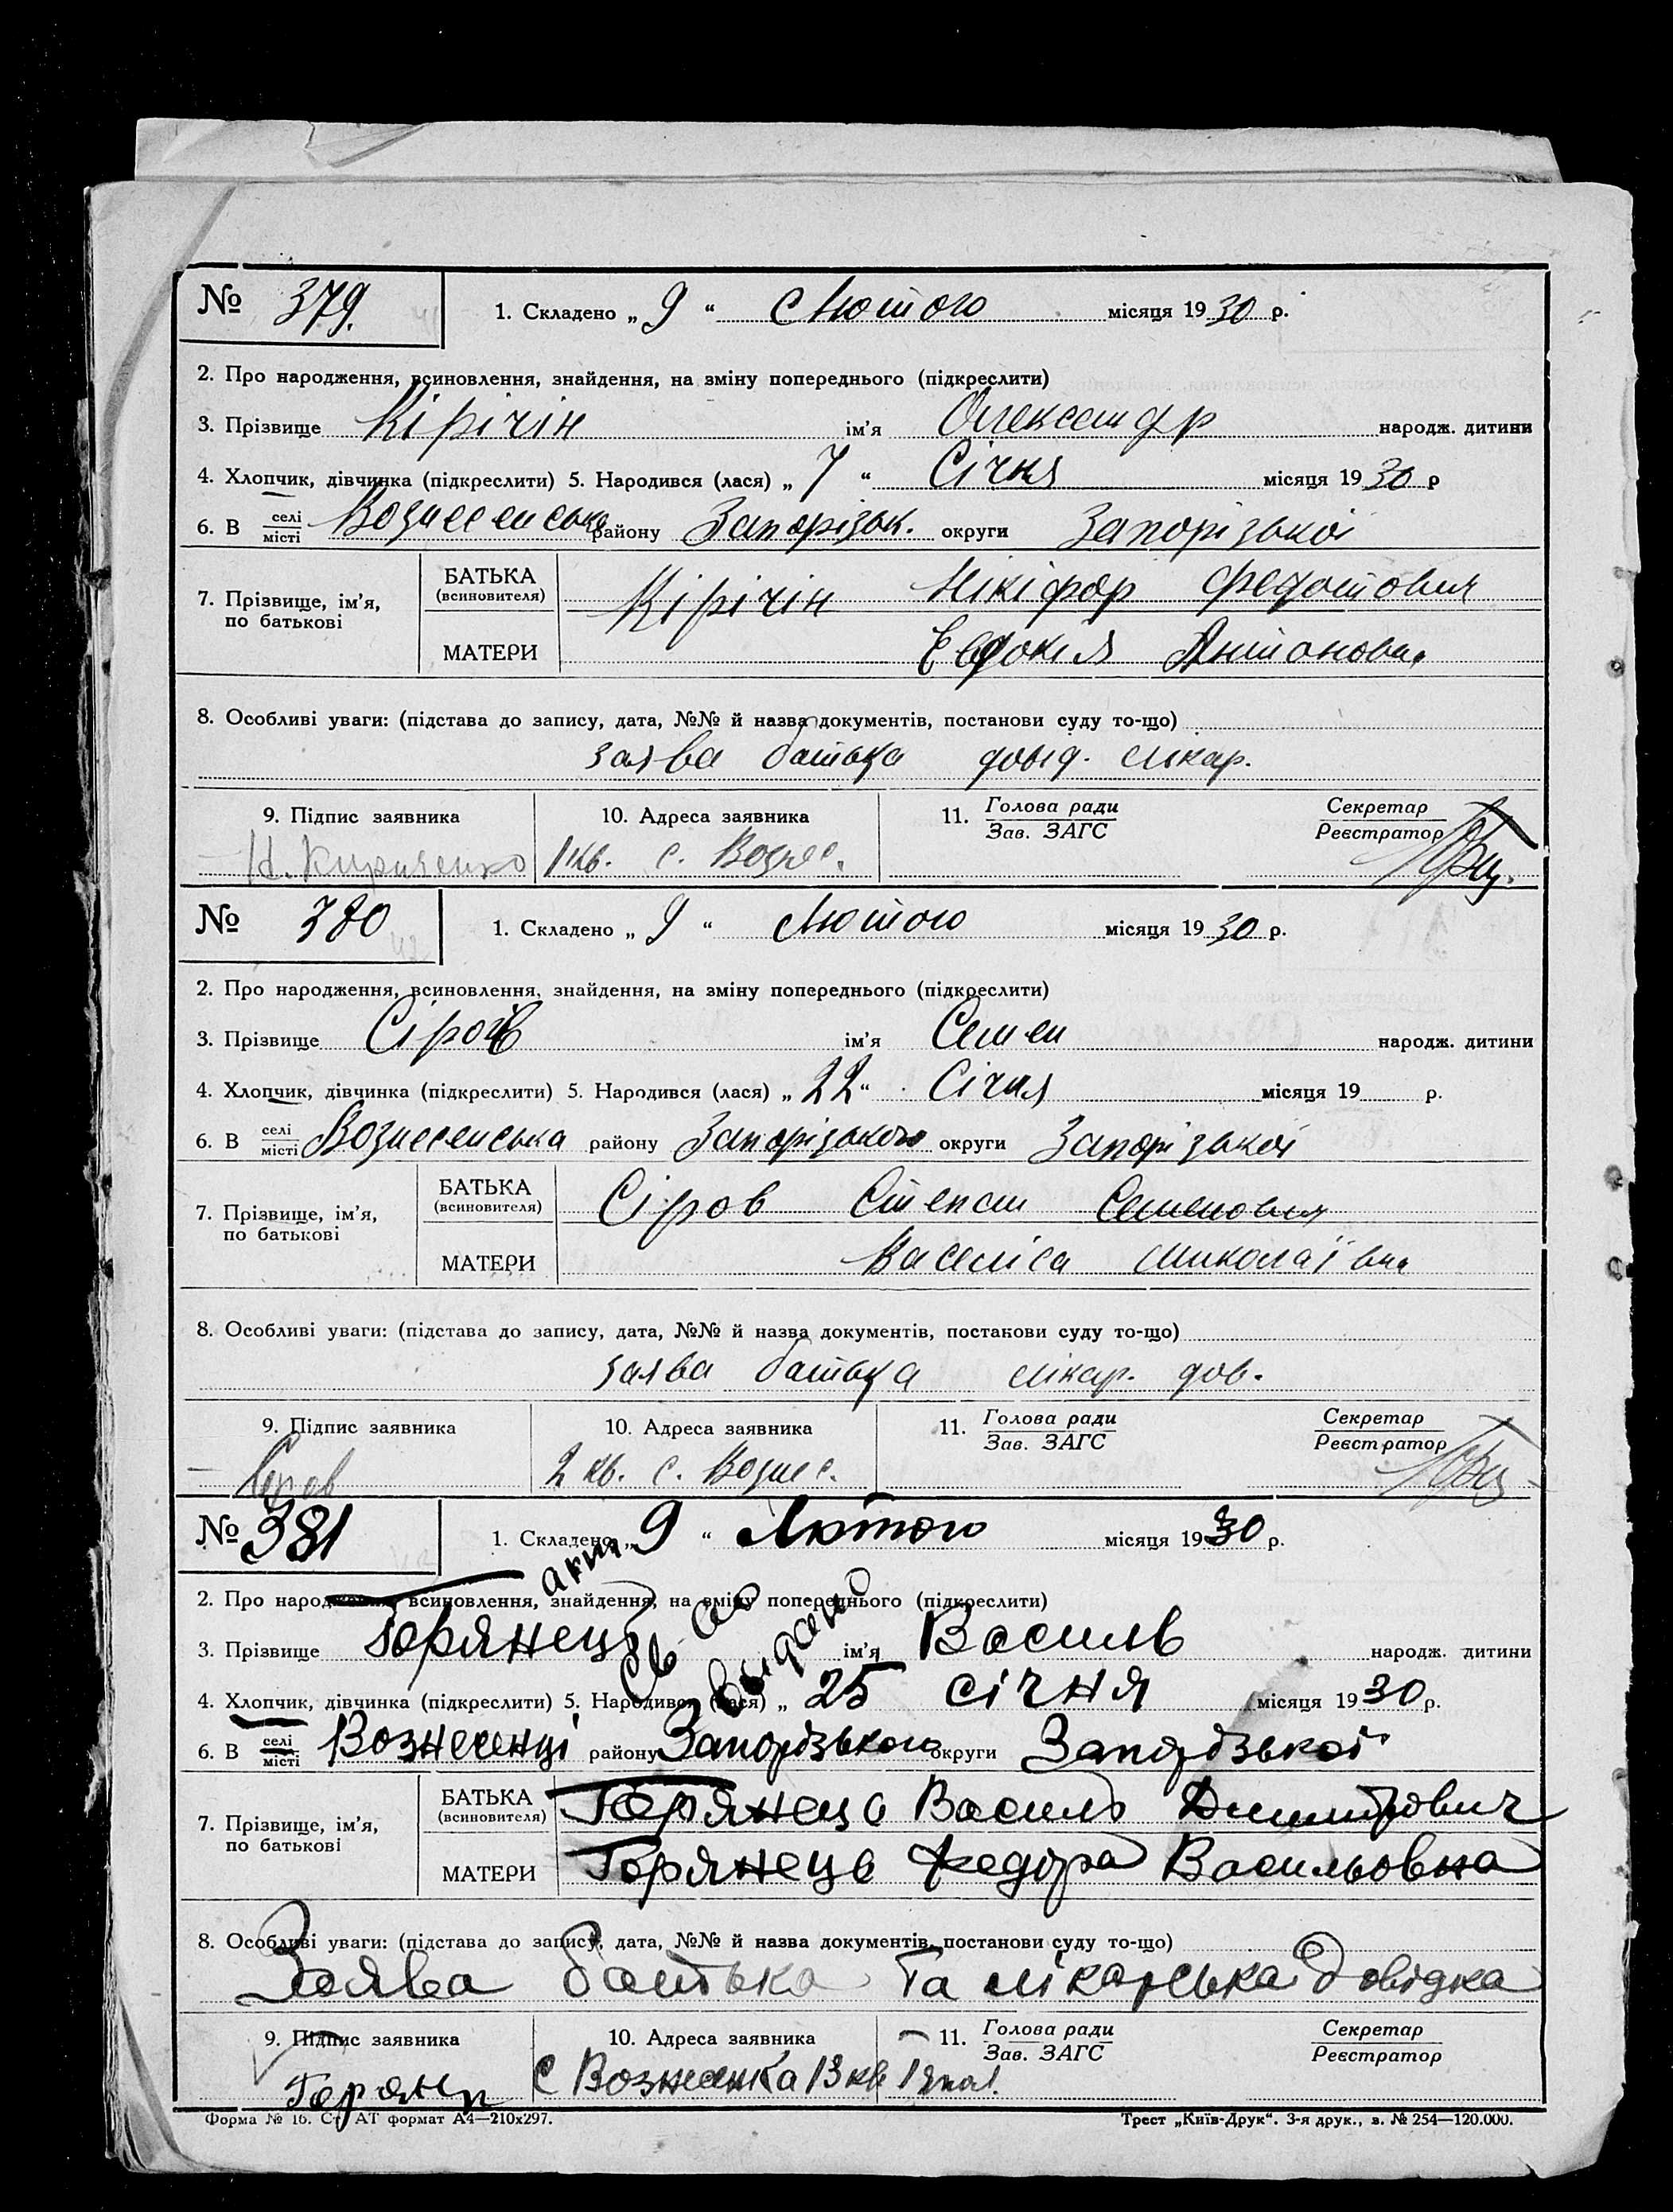 № 379. 1. Складено „ 9 “ Лютого місяця 1930 р.
2. Про народження, всиновлення, знайдення, на зміну попереднього (підкреслити)
3. Прізвище Кірічін ім’я Олександр народж. дитини
4. Хлопчик, дівчинка (підкреслити) 5. Народився (лася) „ 7 “ Січня місяця 1930 р
6. В селі місті Вознесенська району Запорізьк. округи Запорізької
7. Прізвище, ім’я, по батькові
БАТЬКА (всиновителя) Кірічін Нікіфор Федотович
МАТЕРИ Евдокія Антоновн.
8. Особливі уваги: (підстава до запису, дата, №№ й назва документів, постанови суду то-що)
заява батька довід. лікар.
9. Підпис заявника 10. Адреса заявника 11. Голова ради Зав. ЗАГС Секретар Реєстратор
Н. Кириченко 1 кв. с. Вознес.
№ 380 1. Складено „ 9 “ Лютого місяця 1930 р.
2. Про народження, всиновлення, знайдення, на зміну попереднього (підкреслити)
3. Прізвище Сіров ім’я Семен народж. дитини
4. Хлопчик, дівчинка (підкреслити) 5. Народився (лася) „ 22 “ Січня місяця 19 р.
6. В селі місті Вознесенська району Запорізького округи Запорізької
7. Прізвище, ім’я, по батькові
БАТЬКА (всиновителя) Сіров Степан Семенович
МАТЕРИ Васеліса Миколаївна
8. Особливі уваги: (підстава до запису, дата, №№ й назва документів, постанови суду то-що)
заява батька лікар. дов.
9. Підпис заявника 10. Адреса заявника 11. Голова ради Зав. ЗАГС Секретар Реєстратор
Серов 2 кв. с. Вознес.
№ 381 1. Складено „ 9 “ Лютого місяця 1930 р.
2. Про народження, всиновлення, знайдення, на зміну попереднього (підкреслити)
3. Прізвище Горянець ім’я Василь народж. дитини
4. Хлопчик, дівчинка (підкреслити) 5. Народився (лася) „ 25 січня місяця 1930 р.
6. В селі місті Вознесенці району Запорізького округи Запорізької
7. Прізвище, ім’я, по батькові
БАТЬКА (всиновителя) Горянець Василь Димитрович
МАТЕРИ Горянець Федора Васильовна
8. Особливі уваги: (підстава до запису, дата, №№ й назва документів, постанови суду то-що)
Заява батька та лікарська довідка
9. Підпис заявника 10. Адреса заявника 11. Голова ради Зав. ЗАГС Секретар Реєстратор
Горянец с Вознесенка 13 кв
Форма № 16. Ст. АТ формат А4—210х297. Трест „Київ-Друк“. 3-я друк., з. № 254—120.000.